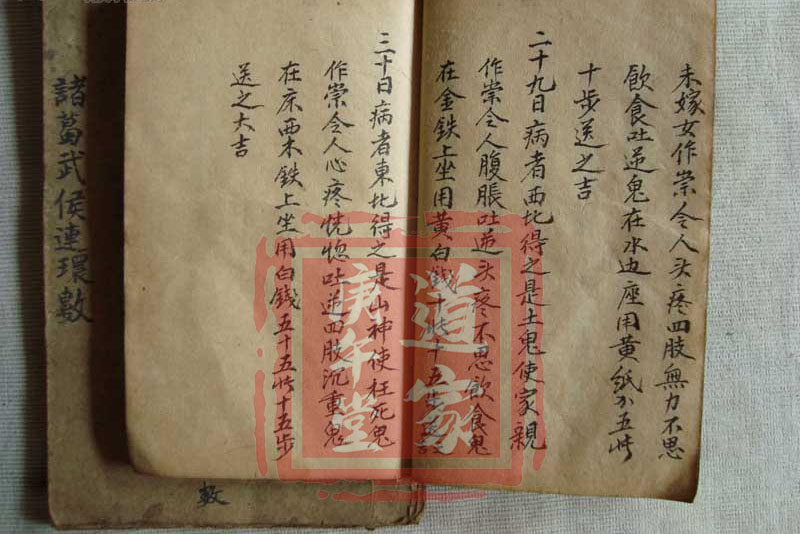 未嫁女作祟令人头疼四肢無力不思
飲食吐逆鬼在水边座用黄紙力五阡
十步送之吉
二十九日病者西北得之是土鬼使家親
作祟令人腹脹吐逆头疼不思飲食鬼
在金鉄上坐用黄白錢十阡十五步
三十日病者東北得之是山神使枉死鬼
作祟令人心疼恍惚吐逆四肢沉重鬼
在床西木鉄上坐用白錢五十五阡十五步
送之大吉
諸葛武侯連環數
數
道家
庚午堂